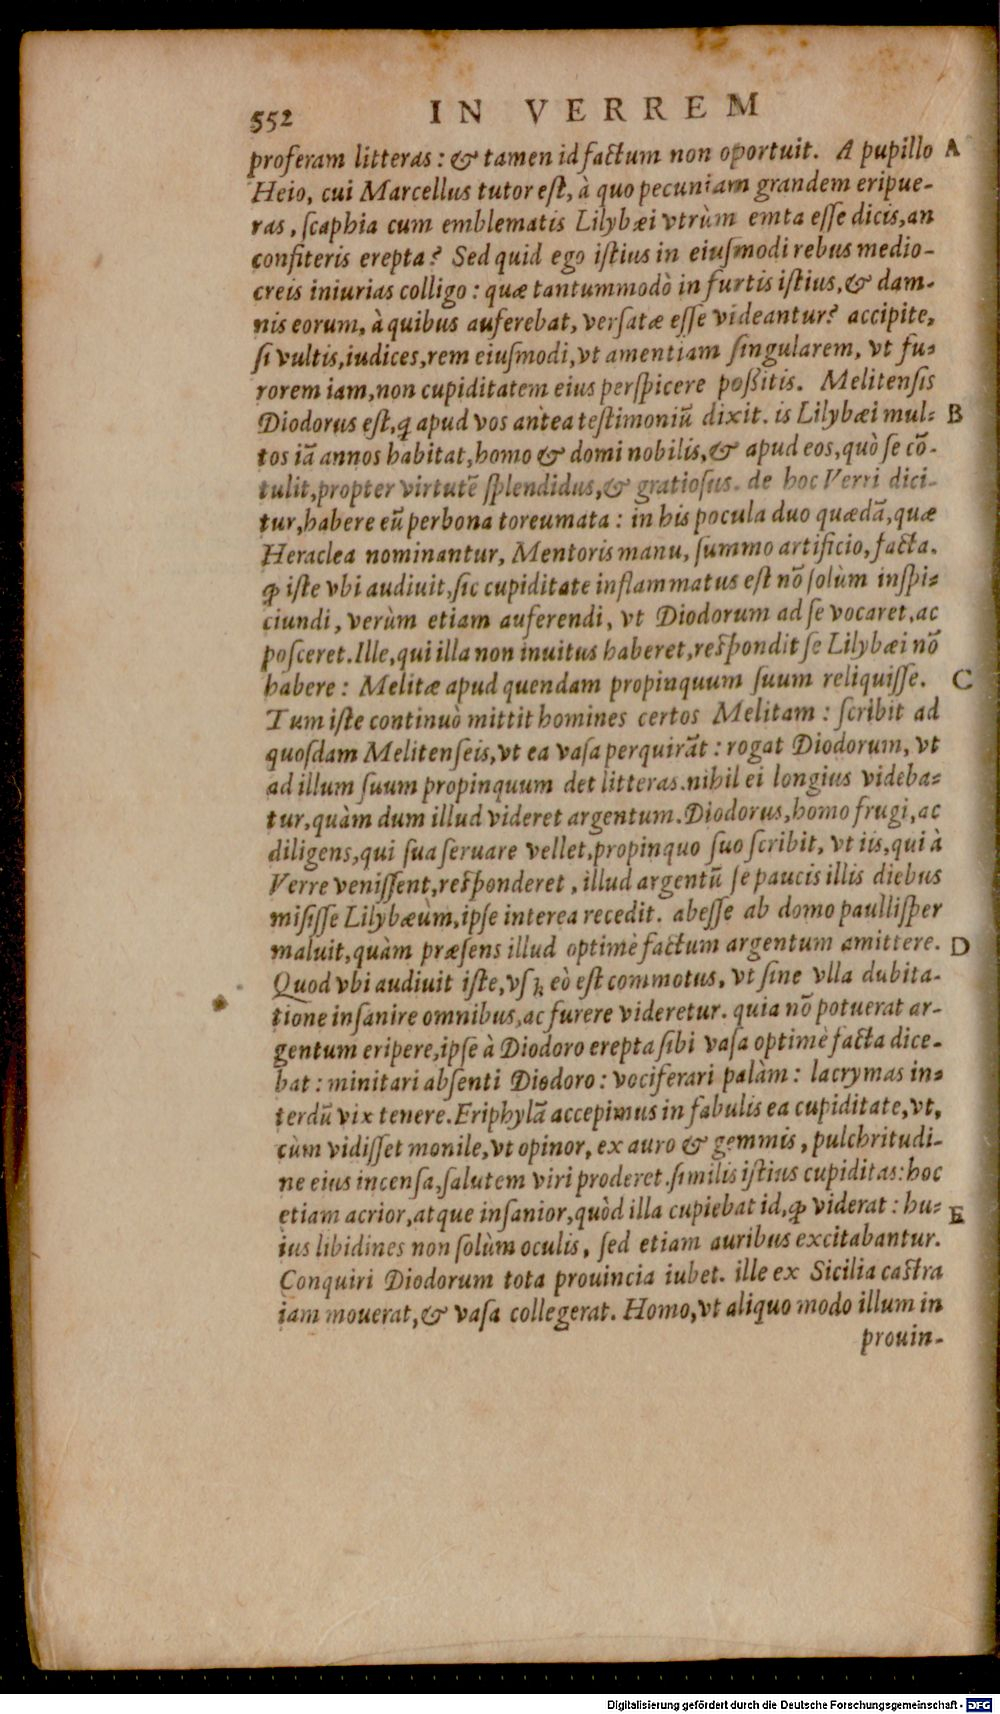 552 IN VERREM
proferam litteras: & tamen id factum non oportuit. A pupillo A
Heio, cui Marcellus tutor est, à quo pecuniam grandem eripue-
ras, scaphia cum emblematis Lilybæi vtrùm emta esse dicis, an
confiteris erepta? Sed quid ego istius in eiusmodi rebus medio-
creis iniurias colligo: quæ tantummodò in furtis istius, & dam-
nis eorum, à quibus auferebat, versatæ esse videantur? accipite,
si vultis, iudices, rem eiusmodi, vt amentiam singularem, vt fu-
rorem iam, non cupiditatem eius perspicere poßitis. Melitensis
Diodorus est, ꝗ apud vos antea testimoniū dixit. is Lilybæi mul- B
tos iā annos habitat, homo & domi nobilis, & apud eos, quò se cō-
tulit, propter virtutē splendidus, & gratiosus. de hoc Verri dici-
tur, habere eū perbona toreumata: in his pocula duo quædā, quæ
Heraclea nominantur, Mentoris manu, summo artificio, facta.
ꝙ iste vbi audiuit, sic cupiditate inflammatus est nō solùm inspi-
ciundi, verùm etiam auferendi, vt Diodorum ad se vocaret, ac
posceret. Ille, qui illa non inuitus haberet, respondit se Lilybæi nō
habere: Melitæ apud quendam propinquum suum reliquisse. C
Tum iste continuò mittit homines certos Melitam: scribit ad
quosdam Melitenseis, vt ea vasa perquirāt: rogat Diodorum, vt
ad illum suum propinquum det litteras. nihil ei longius videba-
tur, quàm dum illud videret argentum. Diodorus, homo frugi, ac
diligens, qui sua seruare vellet, propinquo suo scribit, vt iis, qui à
Verre venissent, responderet, illud argentū se paucis illis diebus
misisse Lilybæùm, ipse interea recedit. abesse ab domo paullisper
maluit, quàm præsens illud optimè factum argentum amittere. D
Quod vbi audiuit iste, vsꝗ eò est commotus, vt sine vlla dubita-
tione insanire omnibus, ac furere videretur. quia nō potuerat ar-
gentum eripere, ipse à Diodoro erepta sibi vasa optimè facta dice-
bat: minitari absenti Diodoro: vociferari palàm: lacrymas in-
terdū vix tenere. Eriphylā accepimus in fabulis ea cupiditate, vt,
cùm vidisset monile, vt opinor, ex auro & gemmis, pulchritudi-
ne eius incensa, salutem viri proderet. similis istius cupiditas: hoc
etiam acrior, atque insanior, quòd illa cupiebat id, ꝙ viderat: hu- E
ius libidines non solùm oculis, sed etiam auribus excitabantur.
Conquiri Diodorum tota prouincia iubet. ille ex Sicilia castra
iam mouerat, & vasa collegerat. Homo, vt aliquo modo illum in
prouin-
Digitalisierung gefördert durch die Deutsche Forschungsgemeinschaft - DFG